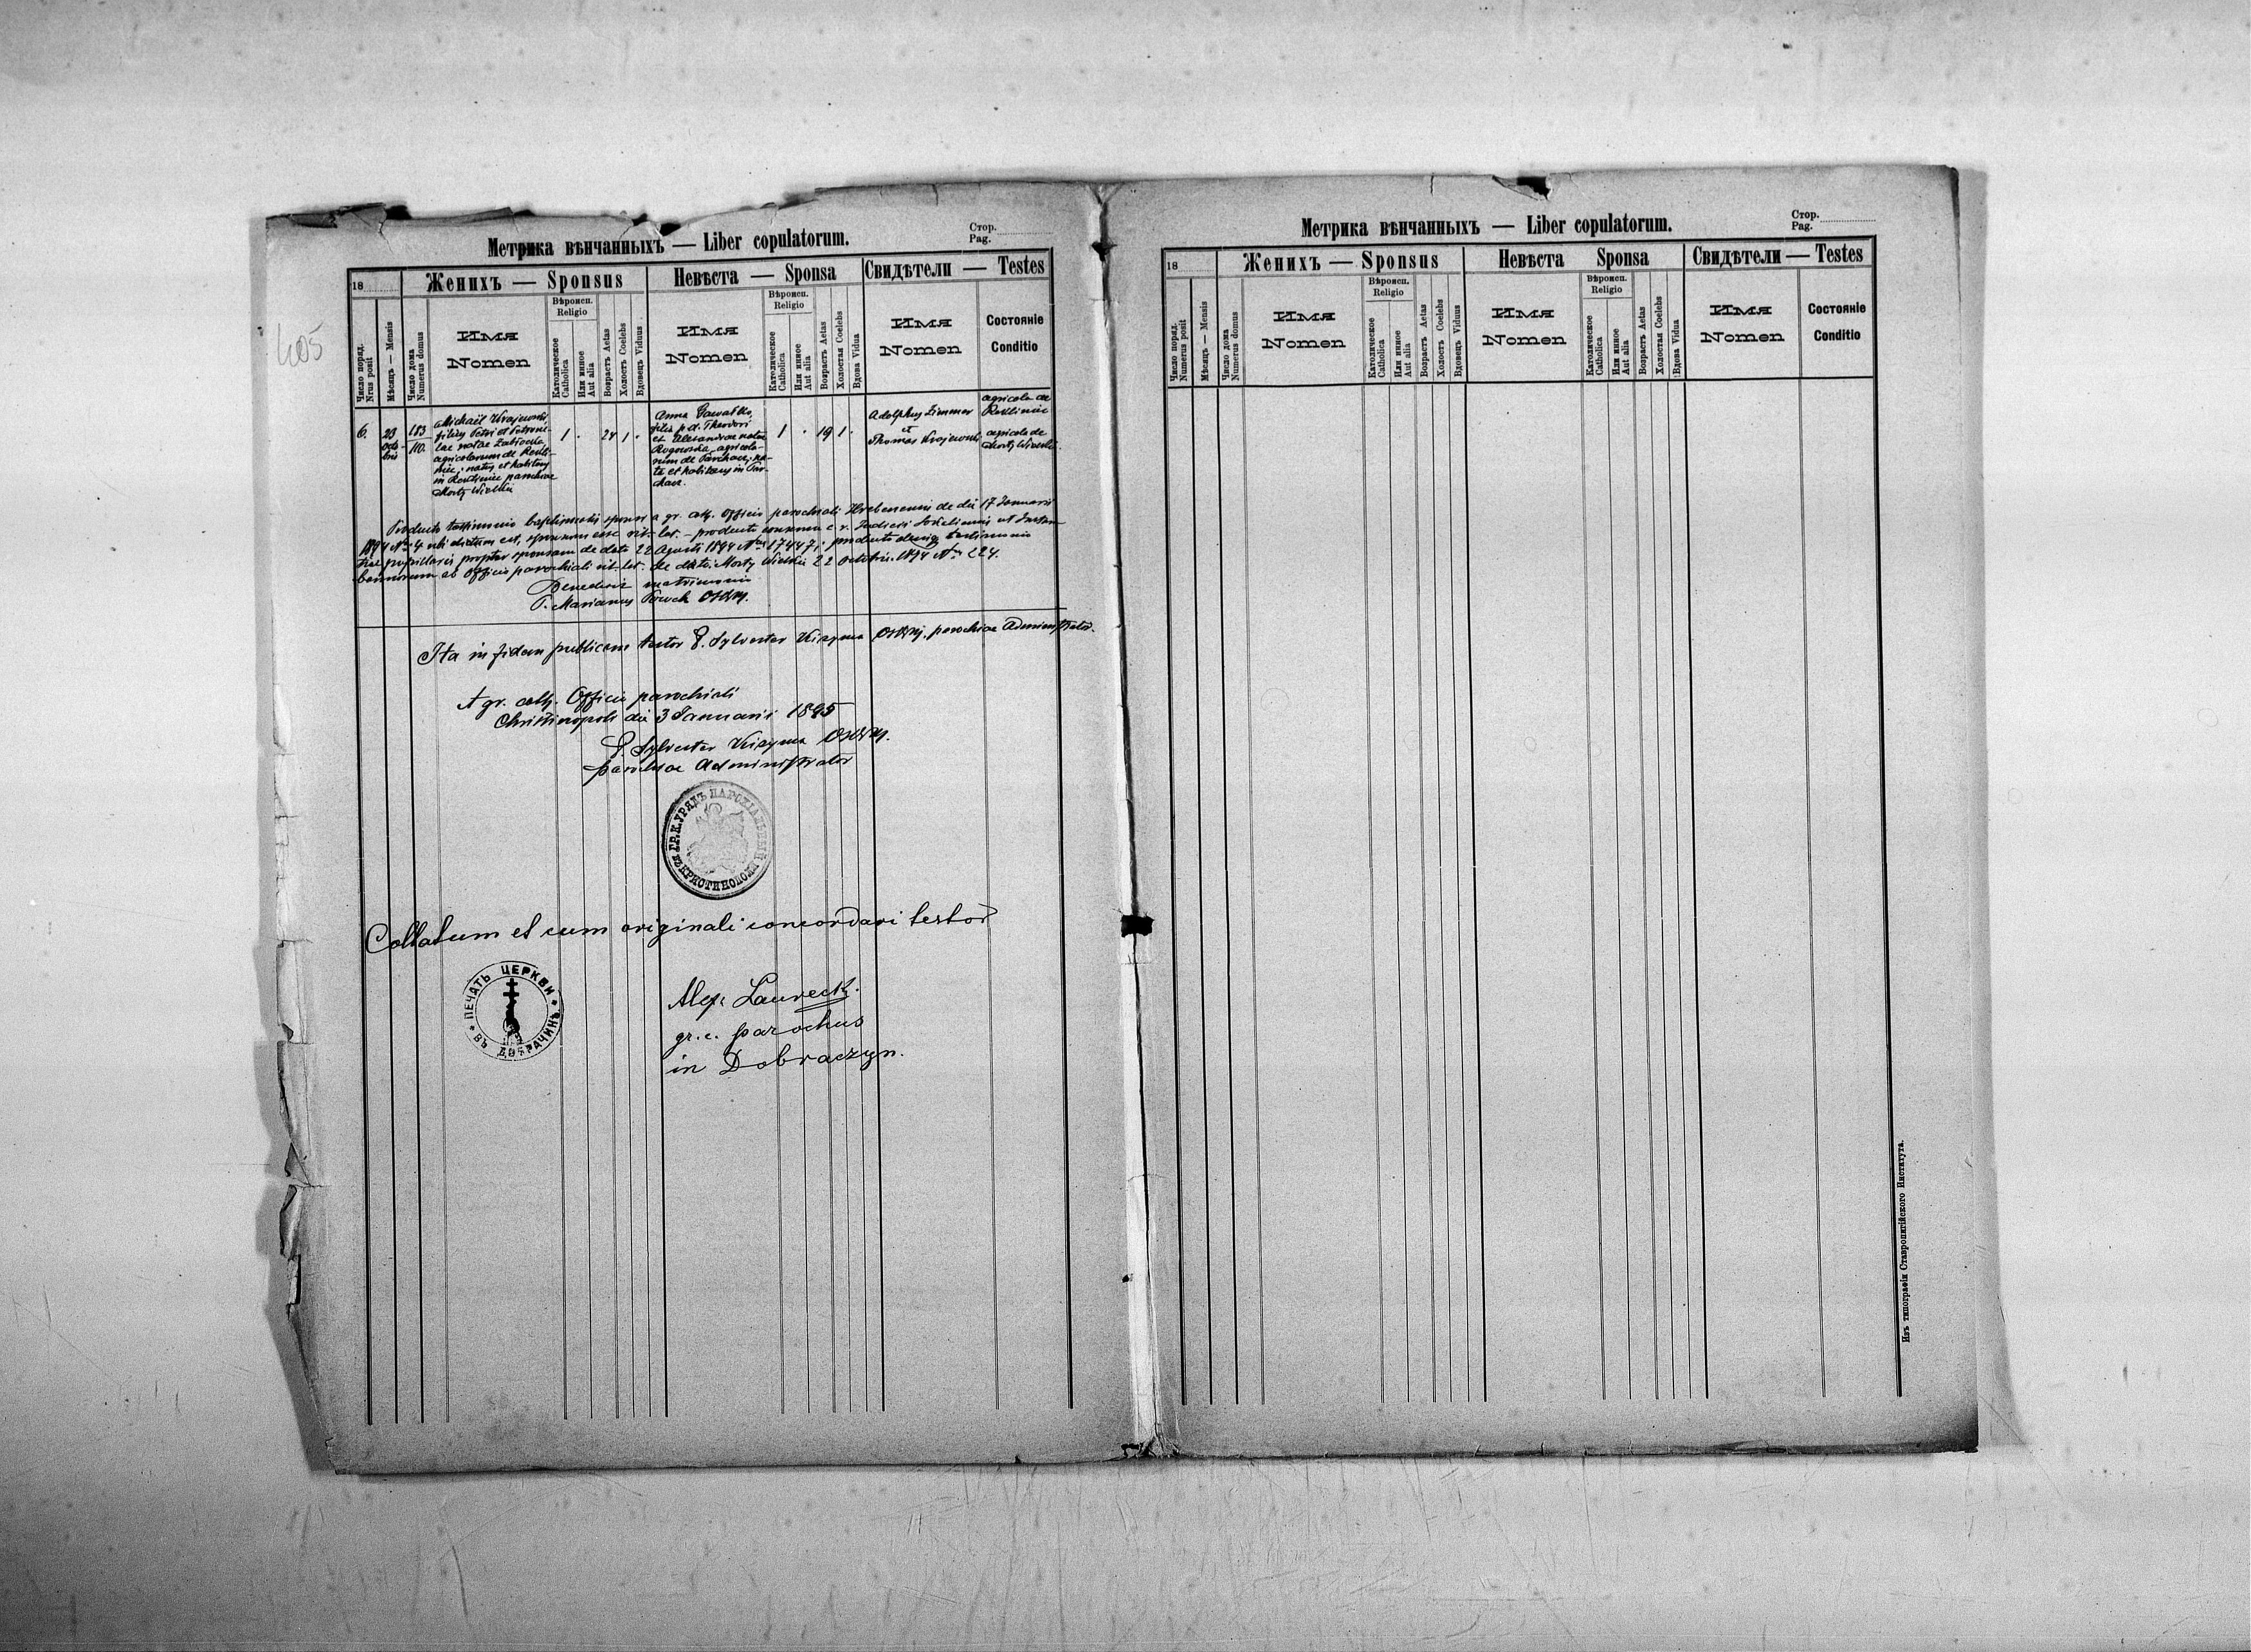 405
Метрика вѣнчанныхъ — Liber copulatorum.
Стор.
Pag.
18
Женихъ — Sponsus
Невѣста — Sponsa
Свидѣтели — Testes
Число поряд.
Nrus posit
Мѣсяцъ — Mensis
Число дома
Numerus domus
Имя
Nomen
Вѣроисп.
Religio
Католическое
Catholica
Или инное
Aut alia
Возрастъ Aetas
Холостъ Coelebs
Вдовецъ Viduus
Имя
Nomen
Вѣроисп.
Religio
Католическое
Catholica
Или инное
Aut alia
Возрастъ Aetas
Холостая Coelebs
Вдова Vidua
Имя
Nomen
Состояніе
Conditio
6.
23
octo-
bris
183
110.
Michaël Krajewski
filius Petri et Petroni-
lae natae
agricolarum de Rekli-
niec; natus et habitans
in Rekliniec parochiae
Mosty Wielkie
1 . 24 1 .
Anna Gawałko,
filia p. d. Theodori
et Alexandrae natae
Rogowska, agricola-
rum de Parchacz; na-
ta et habitans in Par-
chacz.
1 . 19 1 .
Adolphus Zimmer
et
Thomas Krajewski
agricola de
Rekliniec
agricola de
Mosty Wielkie.
Producto testimonio baptismatis sponsi a gr. cath. Officio parochiali de dia 17 Januarii
1894 Nro 4 ubi dictum est, sponsum esse rit. lat. – producto consensu c. r. Judicii Sokaliensis ut Instan-
tiae pupillaris propter sponsam de dato 22 Agusti 1894 Nro 17447; producto denique testimonio
bannorum ab Officio parochiali rit. lat. de dato Mosty Wielkie 22 Octobris 1894 Nro 224.
Benedixit matrimonio
P. Marianus OSBM.
Ita in fidem publicam testor P. Sylvester Kizyma OSBM. parochiae Administrator.
A gr. cath. Officio parochiali
Christinopoli die 3 Januarii 1895
P. Sylvester Kizyma OSBM.
parochiae Administrator
ГР. К. УРЯДЪ ПАРОХІАЛЬНЫЙ
въ КРИСТИНОПОЛИ
Collatum et cum originali concordari testor
ПЕЧАТЬ ЦЕРКВИ
ВЪ ДОБРАЧИНѢ
Alex. Laureck.
gr. c. parochus
in Dobraczyn.
Метрика вѣнчанныхъ — Liber copulatorum.
Стор.
Pag.
18
Женихъ — Sponsus
Невѣста Sponsa
Свидѣтели — Testes
Число поряд.
Numerus posit
Мѣсяцъ — Mensis
Число дома
Numerus domus
Имя
Nomen
Вѣроисп.
Religio
Католическое
Catholica
Или инное
Aut alia
Возрастъ Aetas
Холостъ Coelebs
Вдовецъ Viduus
Имя
Nomen
Вѣроисп.
Religio
Католическое
Catholica
Или инное
Aut alia
Возрастъ Aetas
Холостая Coelebs
Вдова Vidua
Имя
Nomen
Состояніе
Conditio
Изъ типографіи Ставропигійского Института.